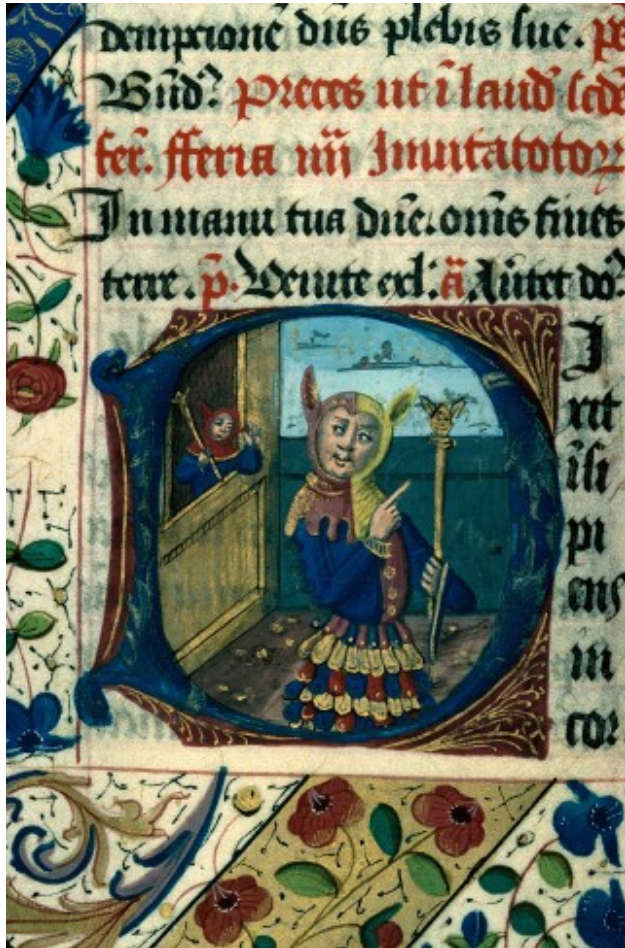 dempcionē dn̄s plebis sue. ps
Bn̄dꝰ. Preces ut ī laud̄ scd̄e
fer̄. fferia iiij Inuitatotoꝝ
In manu tua dn̄e. om̄s fines
terre. p̄. Venite exl̄. ā Au̅tet dō
D
I
xit
īsi
pi
ens
in
cor